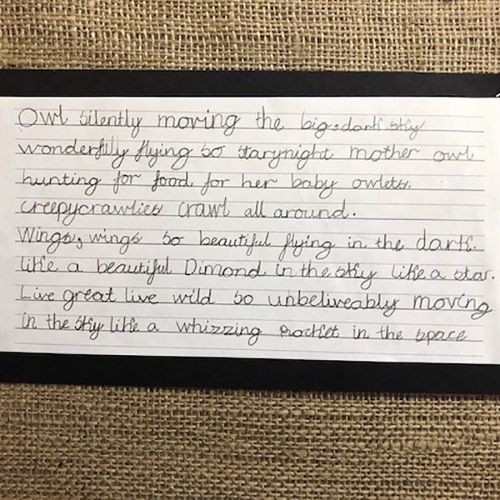 Owl silently moving the big, dark sky
wonderfully flying so starynight mother owl
hunting for food for her baby owlets.
creepycrawlies crawl all around.
Wings, wings so beautiful flying in the dark.
like a beautiful Dimond in the sky like a star.
Live great live wild so unbeliveably moving
in the sky like a whizzing rocket in the space